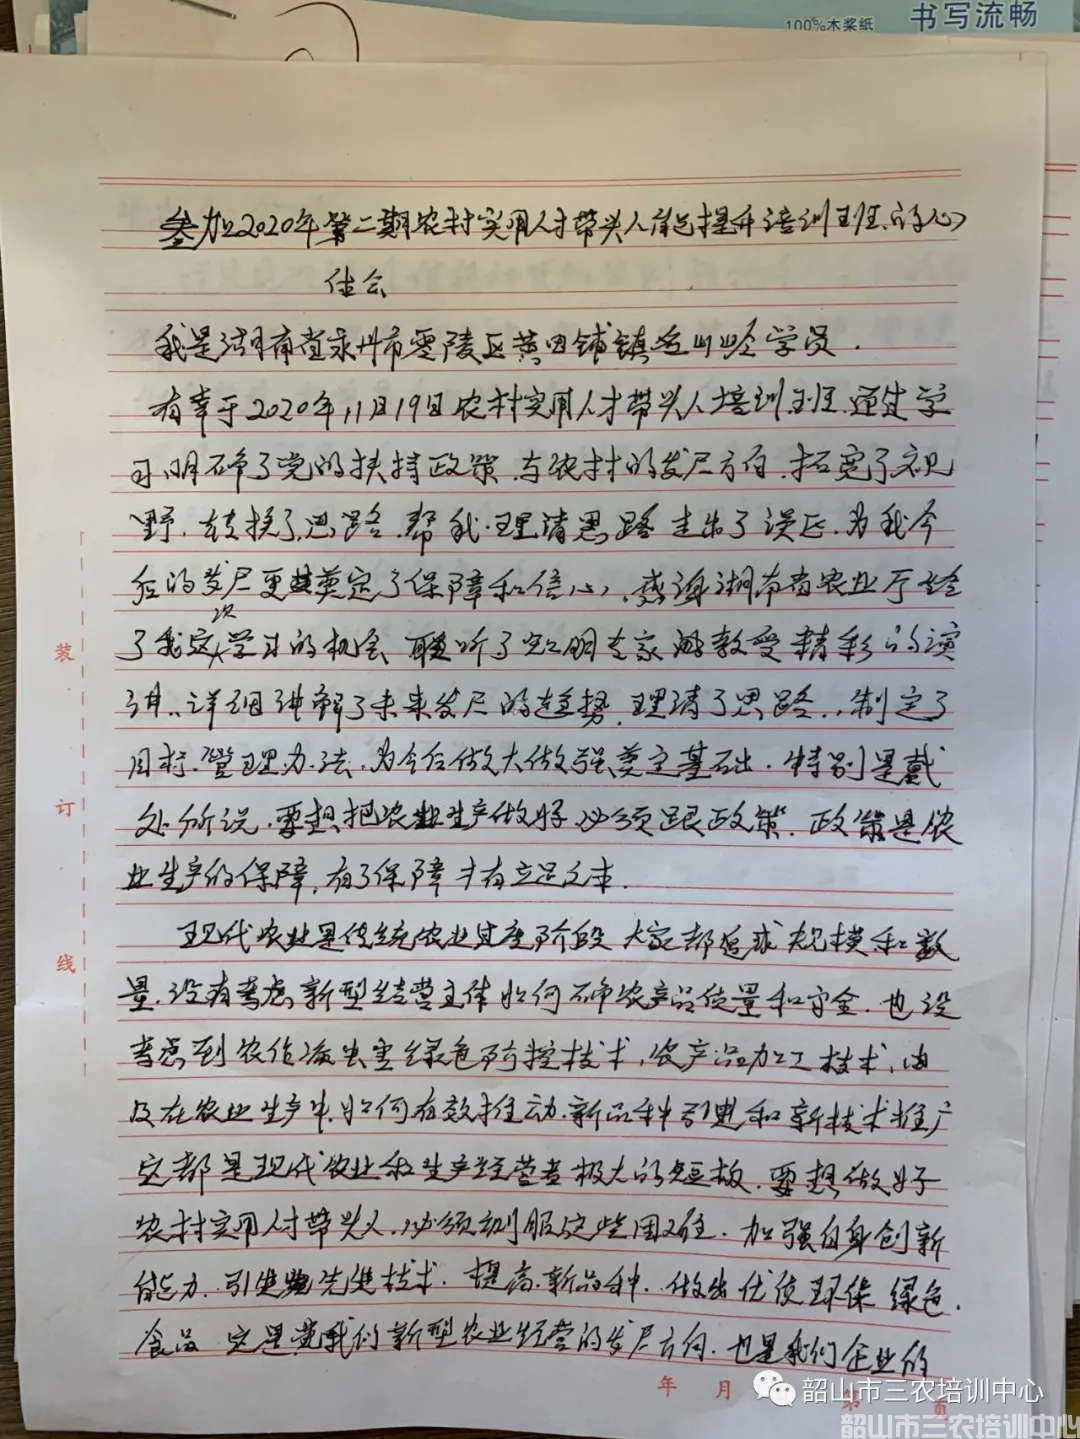 书写流畅
100%木浆纸
参加2020年第二期农村实用人才带头人能力提升培训班的心
体会
我是湖南省永州市零陵区黄田铺镇 学员.
有幸于2020年11月19日农村实用人才带头人培训班.通过学
习明确了党的扶持政策.与农村的发展方向.拓宽了视
野.转换了思路.帮我理清思路走出了误区.为我今
后的发展更奠定了保障和信心.感谢湖南省农业厅给
了我这次学习的机会 聆听了 专家 教授精彩的演
讲.详细讲解了未来发展的趋势.理清了思路.制定了
目标.管理办法.为今后做大做强奠定基础.特别是戴
处所说.要想把农业生产做好.必须跟政策.政策是农
业生产的保障.有了保障才有立足之本.
现代农业是传统农业过度阶段 大家都追求规模和数
量.没有考虑新型经营主体如何确农产品质量和安全.也没
考虑到农作物病虫害绿色防控技术.农产品加工技术.以
及在农业生产中.如何有效推动.新品种引进和新技术推广
它都是现代农业和生产经营者极大的短板.要想做好
农村实用人才带头人.必须刻服这些困难.加强自身创新
能力.引进先进技术.提高新品种.做出优质环保 绿色.
食品 它是我们新型农业经营的发展方向.也是我们企业的
装
订
线
年 月
第 页
韶山市三农培训中心
韶山市三农培训中心